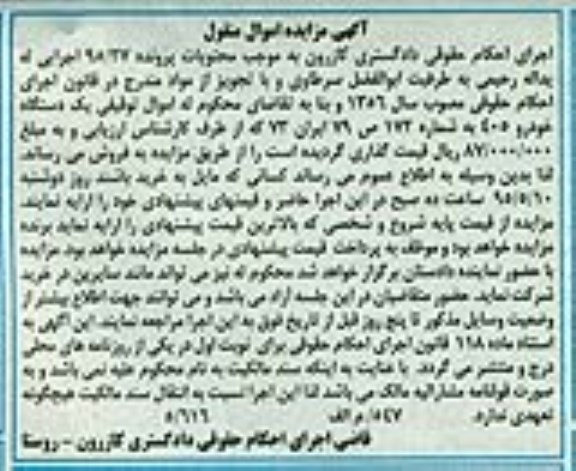 آگهی مزایده اموال منقول
اجرای احکام حقوقی دادگستری کازرون به موجب محتویات پرونده ۹۸/۳۷ اجرایی له
یداله رحیمی به طرفیت ابوالفضل سرطاوی و با تجویز از مواد مندرج در قانون اجرای
احکام حقوقی مصوب سال ۱۳۵۶ و بنا به تقاضای محکوم له اموال توقیفی یک دستگاه
خودرو ۴۰۵ به شماره ۱۷۳ ص ۷۹ ایران ۷۳ که از طرف کارشناس ارزیابی و به مبلغ
۸۷/۰۰۰/۰۰۰ ریال قیمت گذاری گردیده است را از طریق مزایده به فروش می رساند.
لذا بدین وسیله به اطلاع عموم می رساند کسانی که مایل به خرید باشند روز دوشنبه
۹۵/۵/۱۰ ساعت ده صبح در این اجرا حاضر و قیمتهای پیشنهادی خود را ارایه نمایند.
مزایده از قیمت پایه شروع و شخصی که بالاترین قیمت پیشنهادی را ارایه نماید برنده
مزایده خواهد بود و موظف به پرداخت قیمت پیشنهادی در جلسه مزایده خواهد بود. مزایده
با حضور نماینده دادستان برگزار خواهد شد محکوم له نیز می تواند مانند سایرین در خرید
شرکت نماید. حضور متقاضیان در این جلسه آزاد می باشد و می توانند جهت اطلاع بیشتر از
وضعیت وسایل مذکور تا پنج روز قبل از تاریخ فوق به این اجرا مراجعه نمایند. این آگهی به
استناد ماده ۱۱۸ قانون اجرای احکام حقوقی برای نوبت اول در یکی از روزنامه های محلی
درج و منتشر می گردد. با عنایت به اینکه سند مالکیت به نام محکوم علیه نمی باشد و به
صورت قولنامه مشارالیه مالک می باشد لذا این اجرا نسبت به انتقال سند مالکیت هیچگونه
تعهدی ندارد. ۵۴۷/م الف ۵/۶۱۶
قاضی اجرای احکام حقوقی دادگستری کازرون - روستا